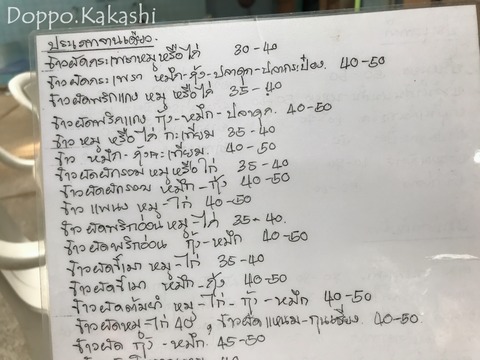 Doppo.Kakashi
ประเภทจานเดียว.
ข้าวผัดกระเพราหมูหรือไก่ 30-40
ข้าวผัดกระเพรา หมึก-กุ้ง-ปลาดุก-ปลากระป๋อง. 40-50
ข้าวผัดพริกแกง หมู หรือ ไก่ 35-40
ข้าวผัดพริกแกง กุ้ง-หมึก-ปลาดุก. 40-50
ข้าว หมู หรือ ไก่ กะเทียม 35-40
ข้าว หมึก-กุ้งกะเทียม. 40-50
ข้าวผัดผักรวม หมูหรือไก่ 35-40
ข้าวผัดผักรวม หมึก-กุ้ง 40-50
ข้าว แพนง หมู-ไก่ 40-50
ข้าวผัดพริกอ่อน หมู-ไก่ 35-40.
ข้าวผัดพริกอ่อน กุ้ง-หมึก 40-50
ข้าวผัดขี้เมา หมู-ไก่ 35-40
ข้าวผัดขี้เมา หมึก-กุ้ง 40-50
ข้าวผัดต้มยำ หมู-ไก่-กุ้ง-หมึก 40-50
ข้าวผัดหมู-ไก่ 40, ข้าวผัดแหนม-กุนเชียง. 40-50
ข้าวผัด กุ้ง-หมึก. 45-50